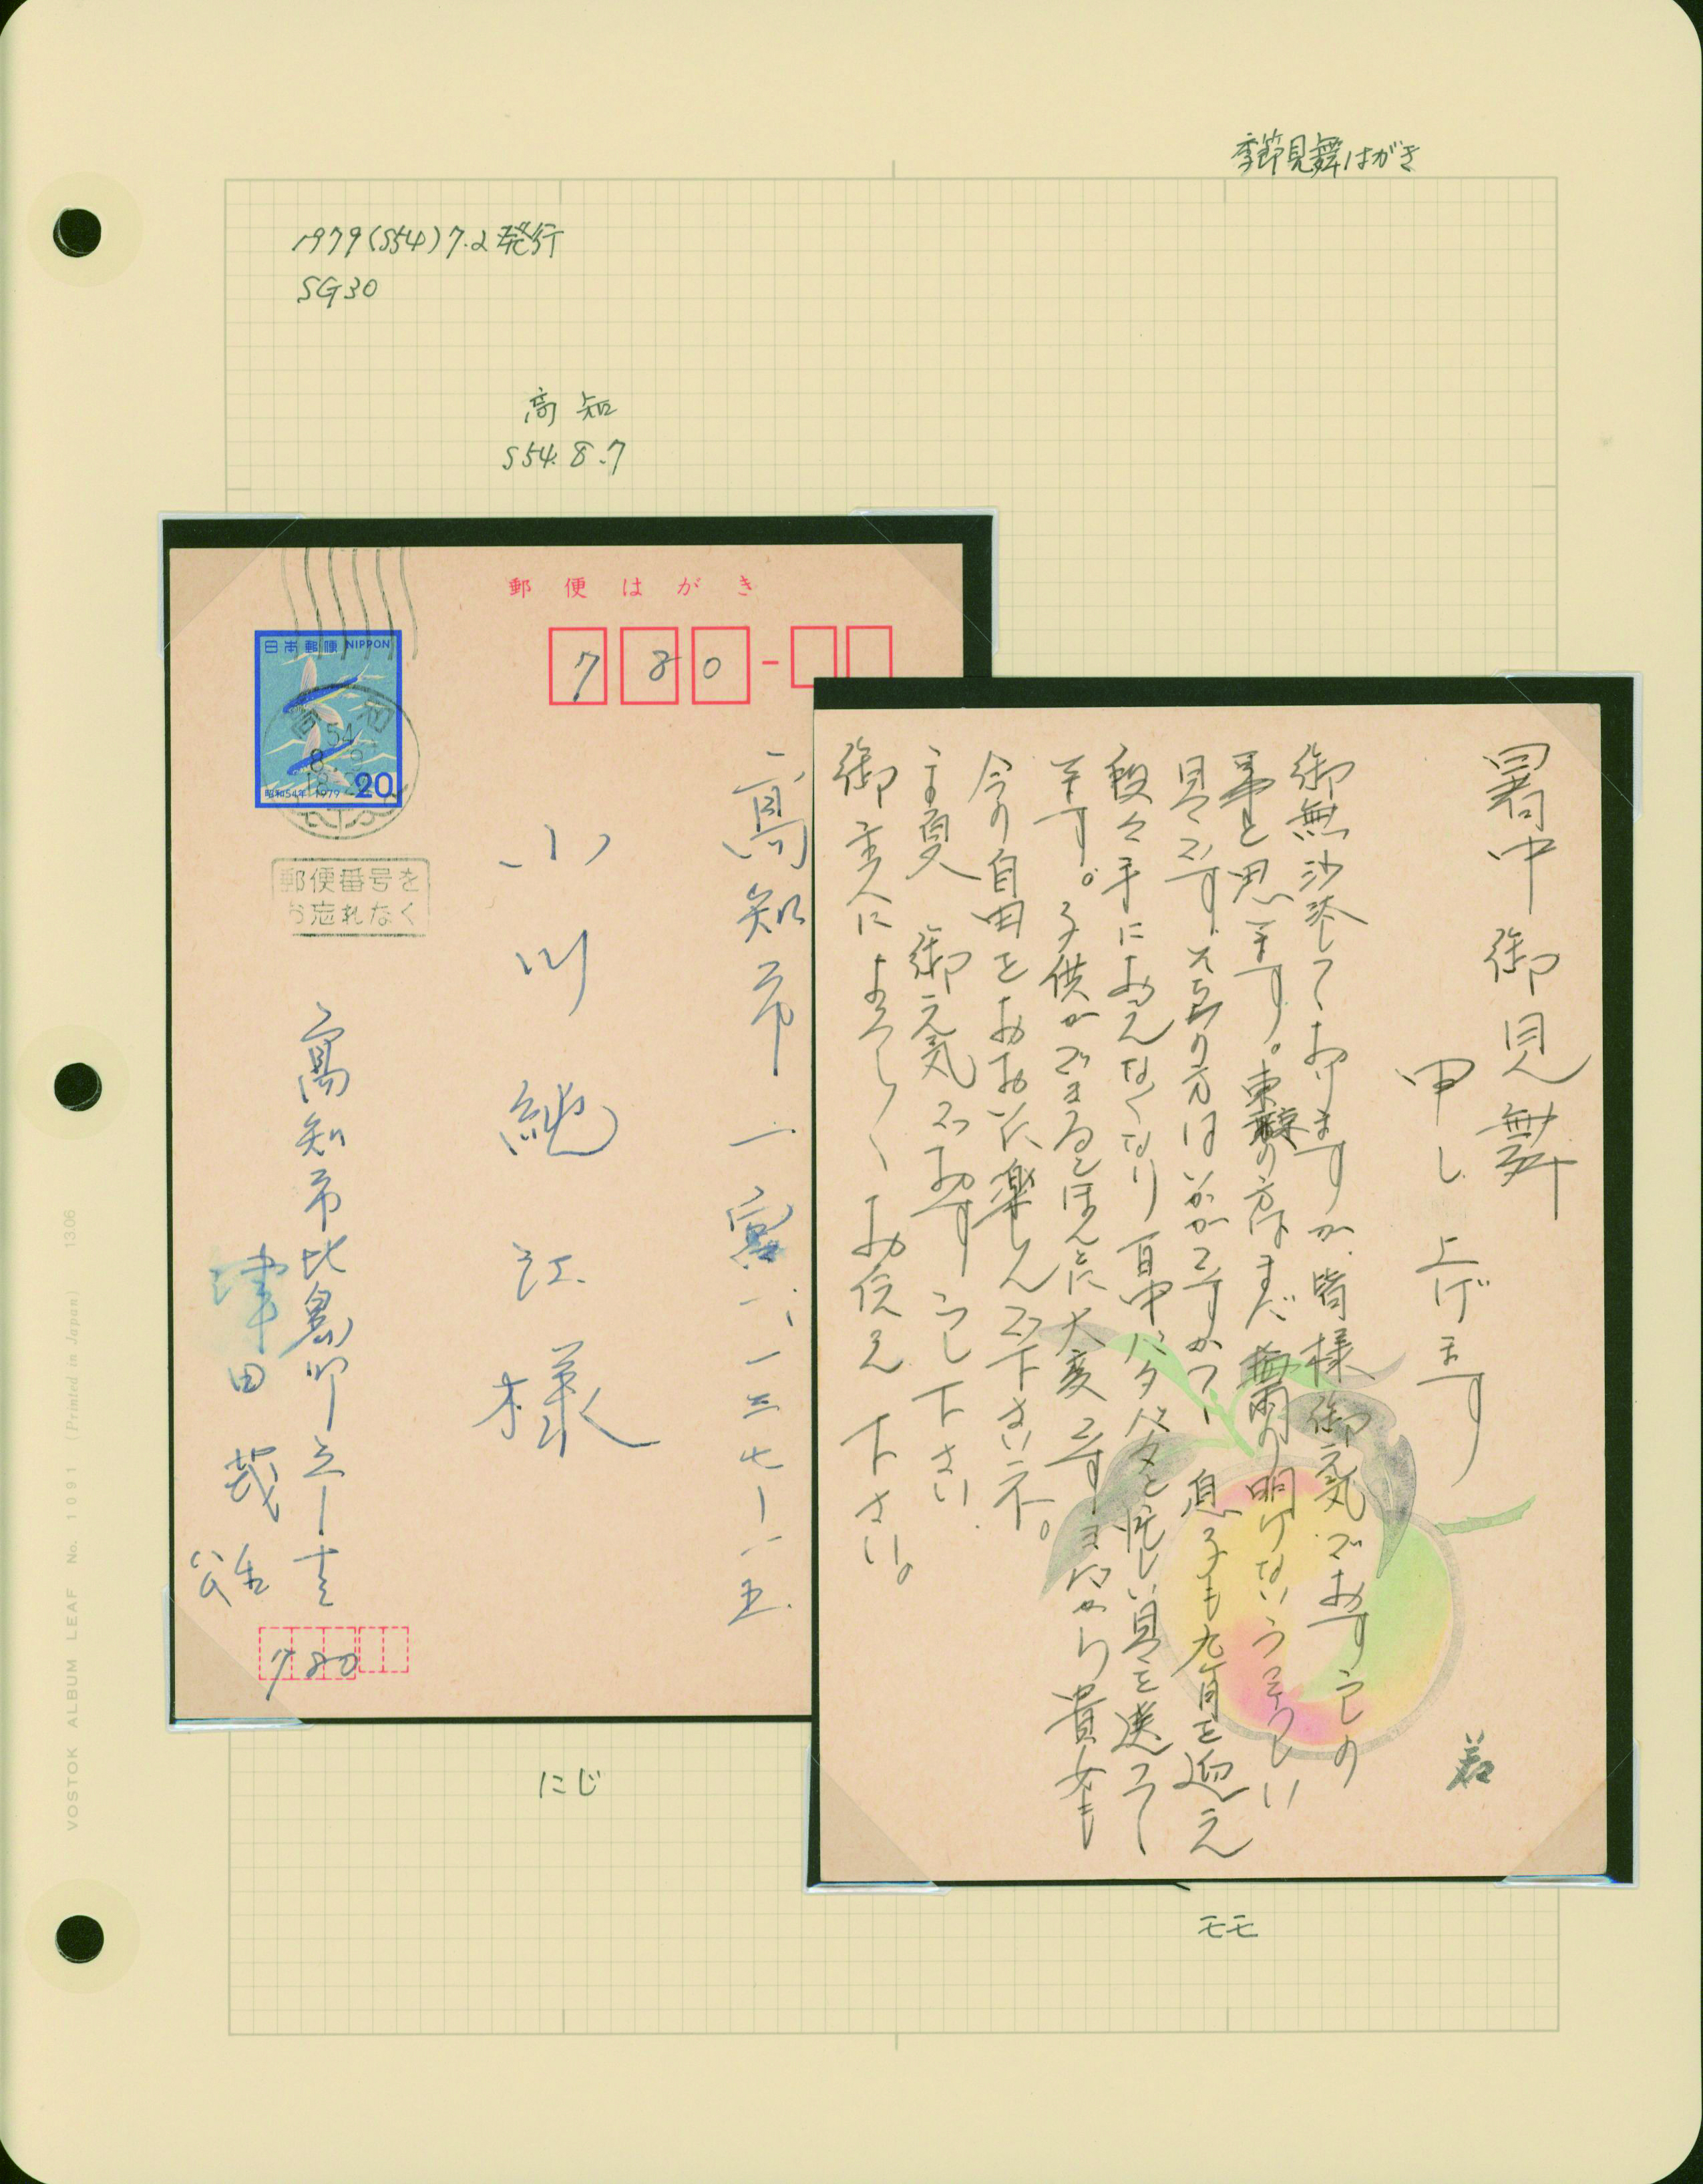 季節見舞はがき
1979(S54)7.2発行
SG30
高知
S54.8.7
郵便はがき
780-
日本郵便 NIPPON
昭和54年 1979
20
高知
54
8
18
郵便番号を
お忘れなく
高知市一宮
小川
江様
高知市比島町
津田
780
暑中御見舞
申し上げます
御無沙汰しておりますが、皆様御元気でおすごしの
事と思います。東京の方はまだ梅雨の明けないうっとうしい
息子も九ヶ月を迎え
段々手におえなくなり一日中バタバタと忙しい
ます。子供ができるとほんとに大変です
貴女も
今の自由をおおいに楽しんで下さいネ。
御元気でおすごし下さい
御主人によろしくお伝え下さい。
にじ
モモ
VOSTOK ALBUM LEAF No. 1091 (Printed in Japan) 1306